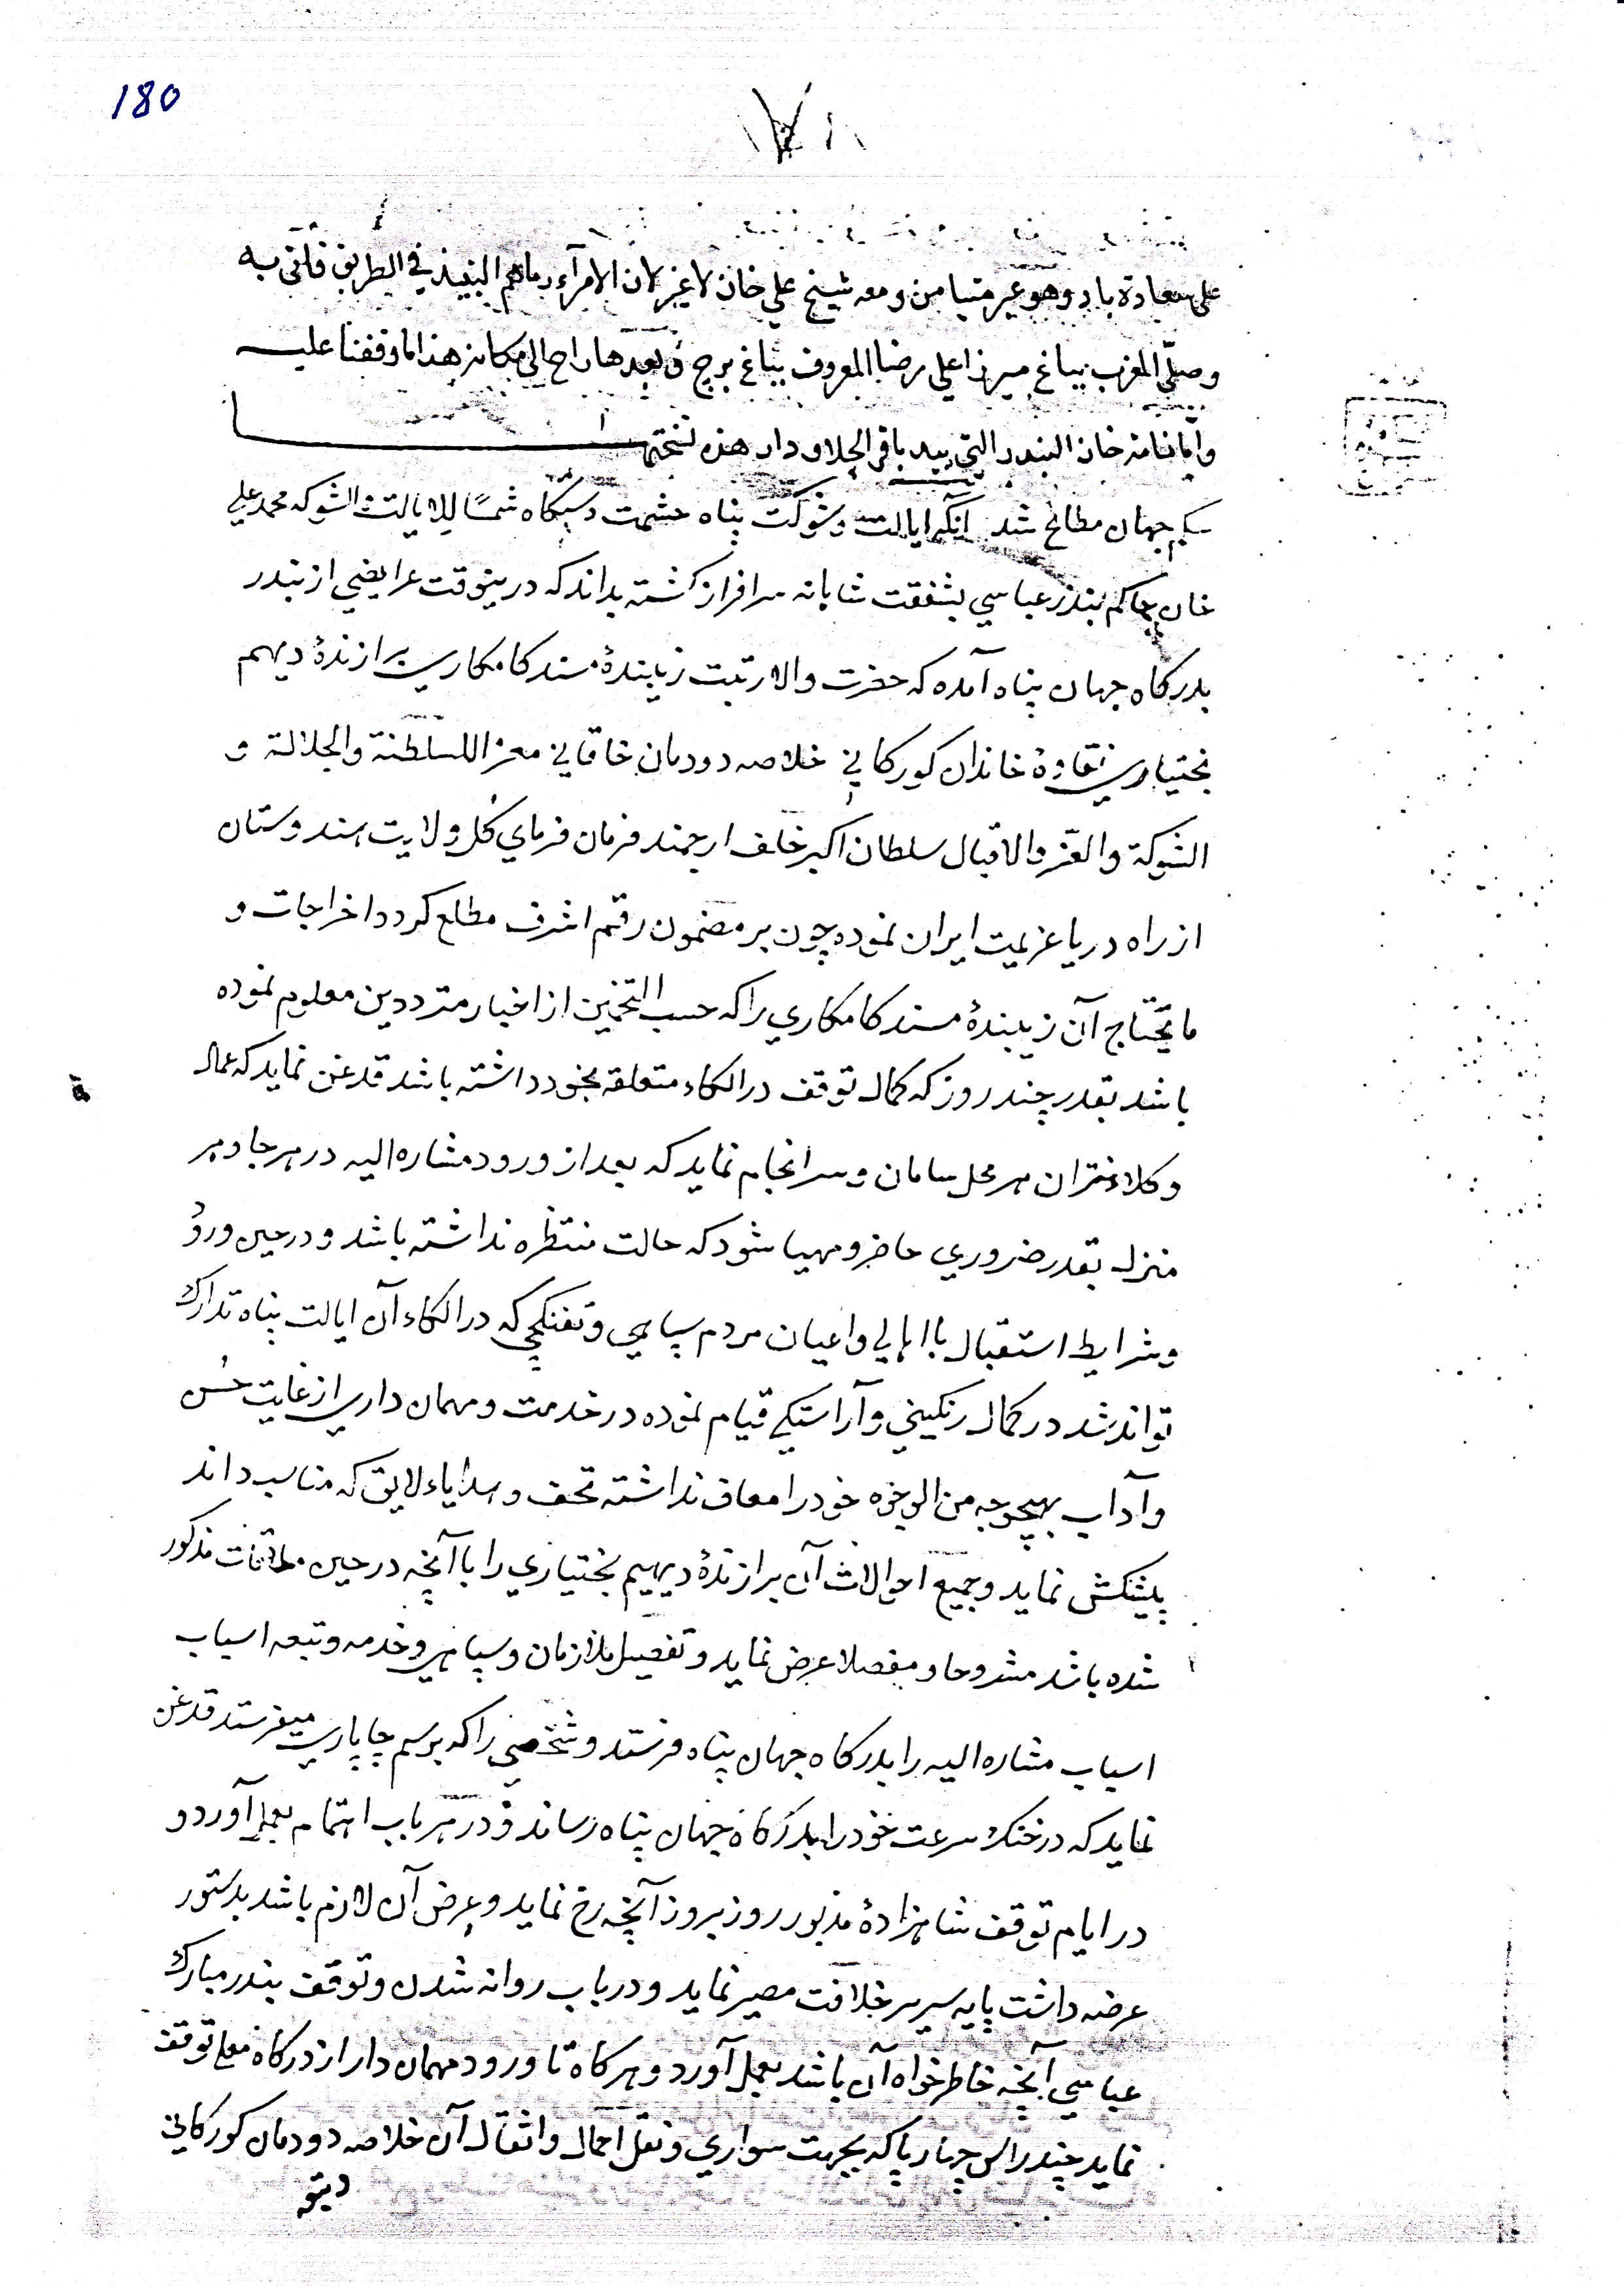 180
١٧٨
على سعادة باد وهو غير متيامن ومعه شيخ علي خان لا غير لان الامرآء رماهم النبيذ في الطريق فاتى به
وصلّى المغرب بباغ ميرزا علي رضا المعروف بباغ برج وبعدها راح الى مكانه هذا ما وقفنا عليه
وامّا نامه خان البندر التي بيد باقر الجلاودار هذه نسختها
حكم جهان مطاع شد آنكه ايالت وشوكت پناه حشمت دستكاه شمسًا للايالت والشوكه محمد علي
خان حاكم بندر عباسي بشفقت شاهانه سرافراز كشته بداند كه درينوقت عرايضي از بندر
بدركاه جهان پناه آمده كه حضرت والا رتبت زيبندهٔ مسند كامكاري برازندهٔ ديهيم
بختياري نقاوهٔ خاندان كوركاني خلاصه دودمان خاقاني معز اللسلطنة والجلالة و
الشوكة والعز والاقبال سلطان اكبر خلف ارجمند فرمان فرماي كل ولايت هندوستان
از راه دريا عزيمت ايران نموده چون بر مضمون رقم اشرف مطلع كردد اخراجات و
ما يحتاج آن زيبندهٔ مسند كامكاري را كه حسب التخمين از اخبار مترددين معلوم نموده
باشد بقدر چند روز كه كمال توقف در الكاء متعلقه بخود داشته باشد قدغن نمايد كه عمال
وكلانتران هر محل سامان وسرانجام نمايد كه بعد از ورود مشاره اليه در هر جا وهر
منزل بقدر ضروري حاضر ومهيا شود كه حالت منتظره نداشته باشد ودر حين ورود
وشرايط استقبال با اهالي واعيان مردم سپاهي وتفنكچي كه در الكاء آن ايالت پناه تدارك
تواند شد در كمال رنكيني وآراستكي قيام نموده در خدمت ومهمان داري از غايت حُسن
وآداب بهيچوجه من الوجوه خود را معاف نداشته تحف وهداياء لايق كه مناسب داند
پيشكش نمايد وجميع احوالات آن برازندهٔ ديهيم بختياري را با آنچه در حين ملاقات مذكور
شده باشد مشروحا ومفصلا عرض نمايد وتفصيل ملازمان وسپاهي وخدمه وتبعه اسباب
اسباب مشاره اليه را بدركاه جهان پناه فرستد وشخصي را كه برسم چاپاري ميفرستد قدغن
نمايد كه در سرعت خود را بدركاه جهان پناه رساند ودر هر باب اهتمام بعمل آورد و
در ايام توقف شاهزادهٔ مزبور روز بروز آنچه رخ نمايد وعرض آن لازم باشد بدستور
عرضه داشت پايه سرير خلافت مصير نمايد ودرباب روانه شدن وتوقف بندر مبارك
عباسي آنچه خاطرخواه آن باشد بعمل آورد وهركاه تا ورود مهمان دار از دركاه معلى توقف
نمايد چند راس چهارپا كه بجهت سواري ونقل احمال واثقال آن خلاصه دودمان كوركاني